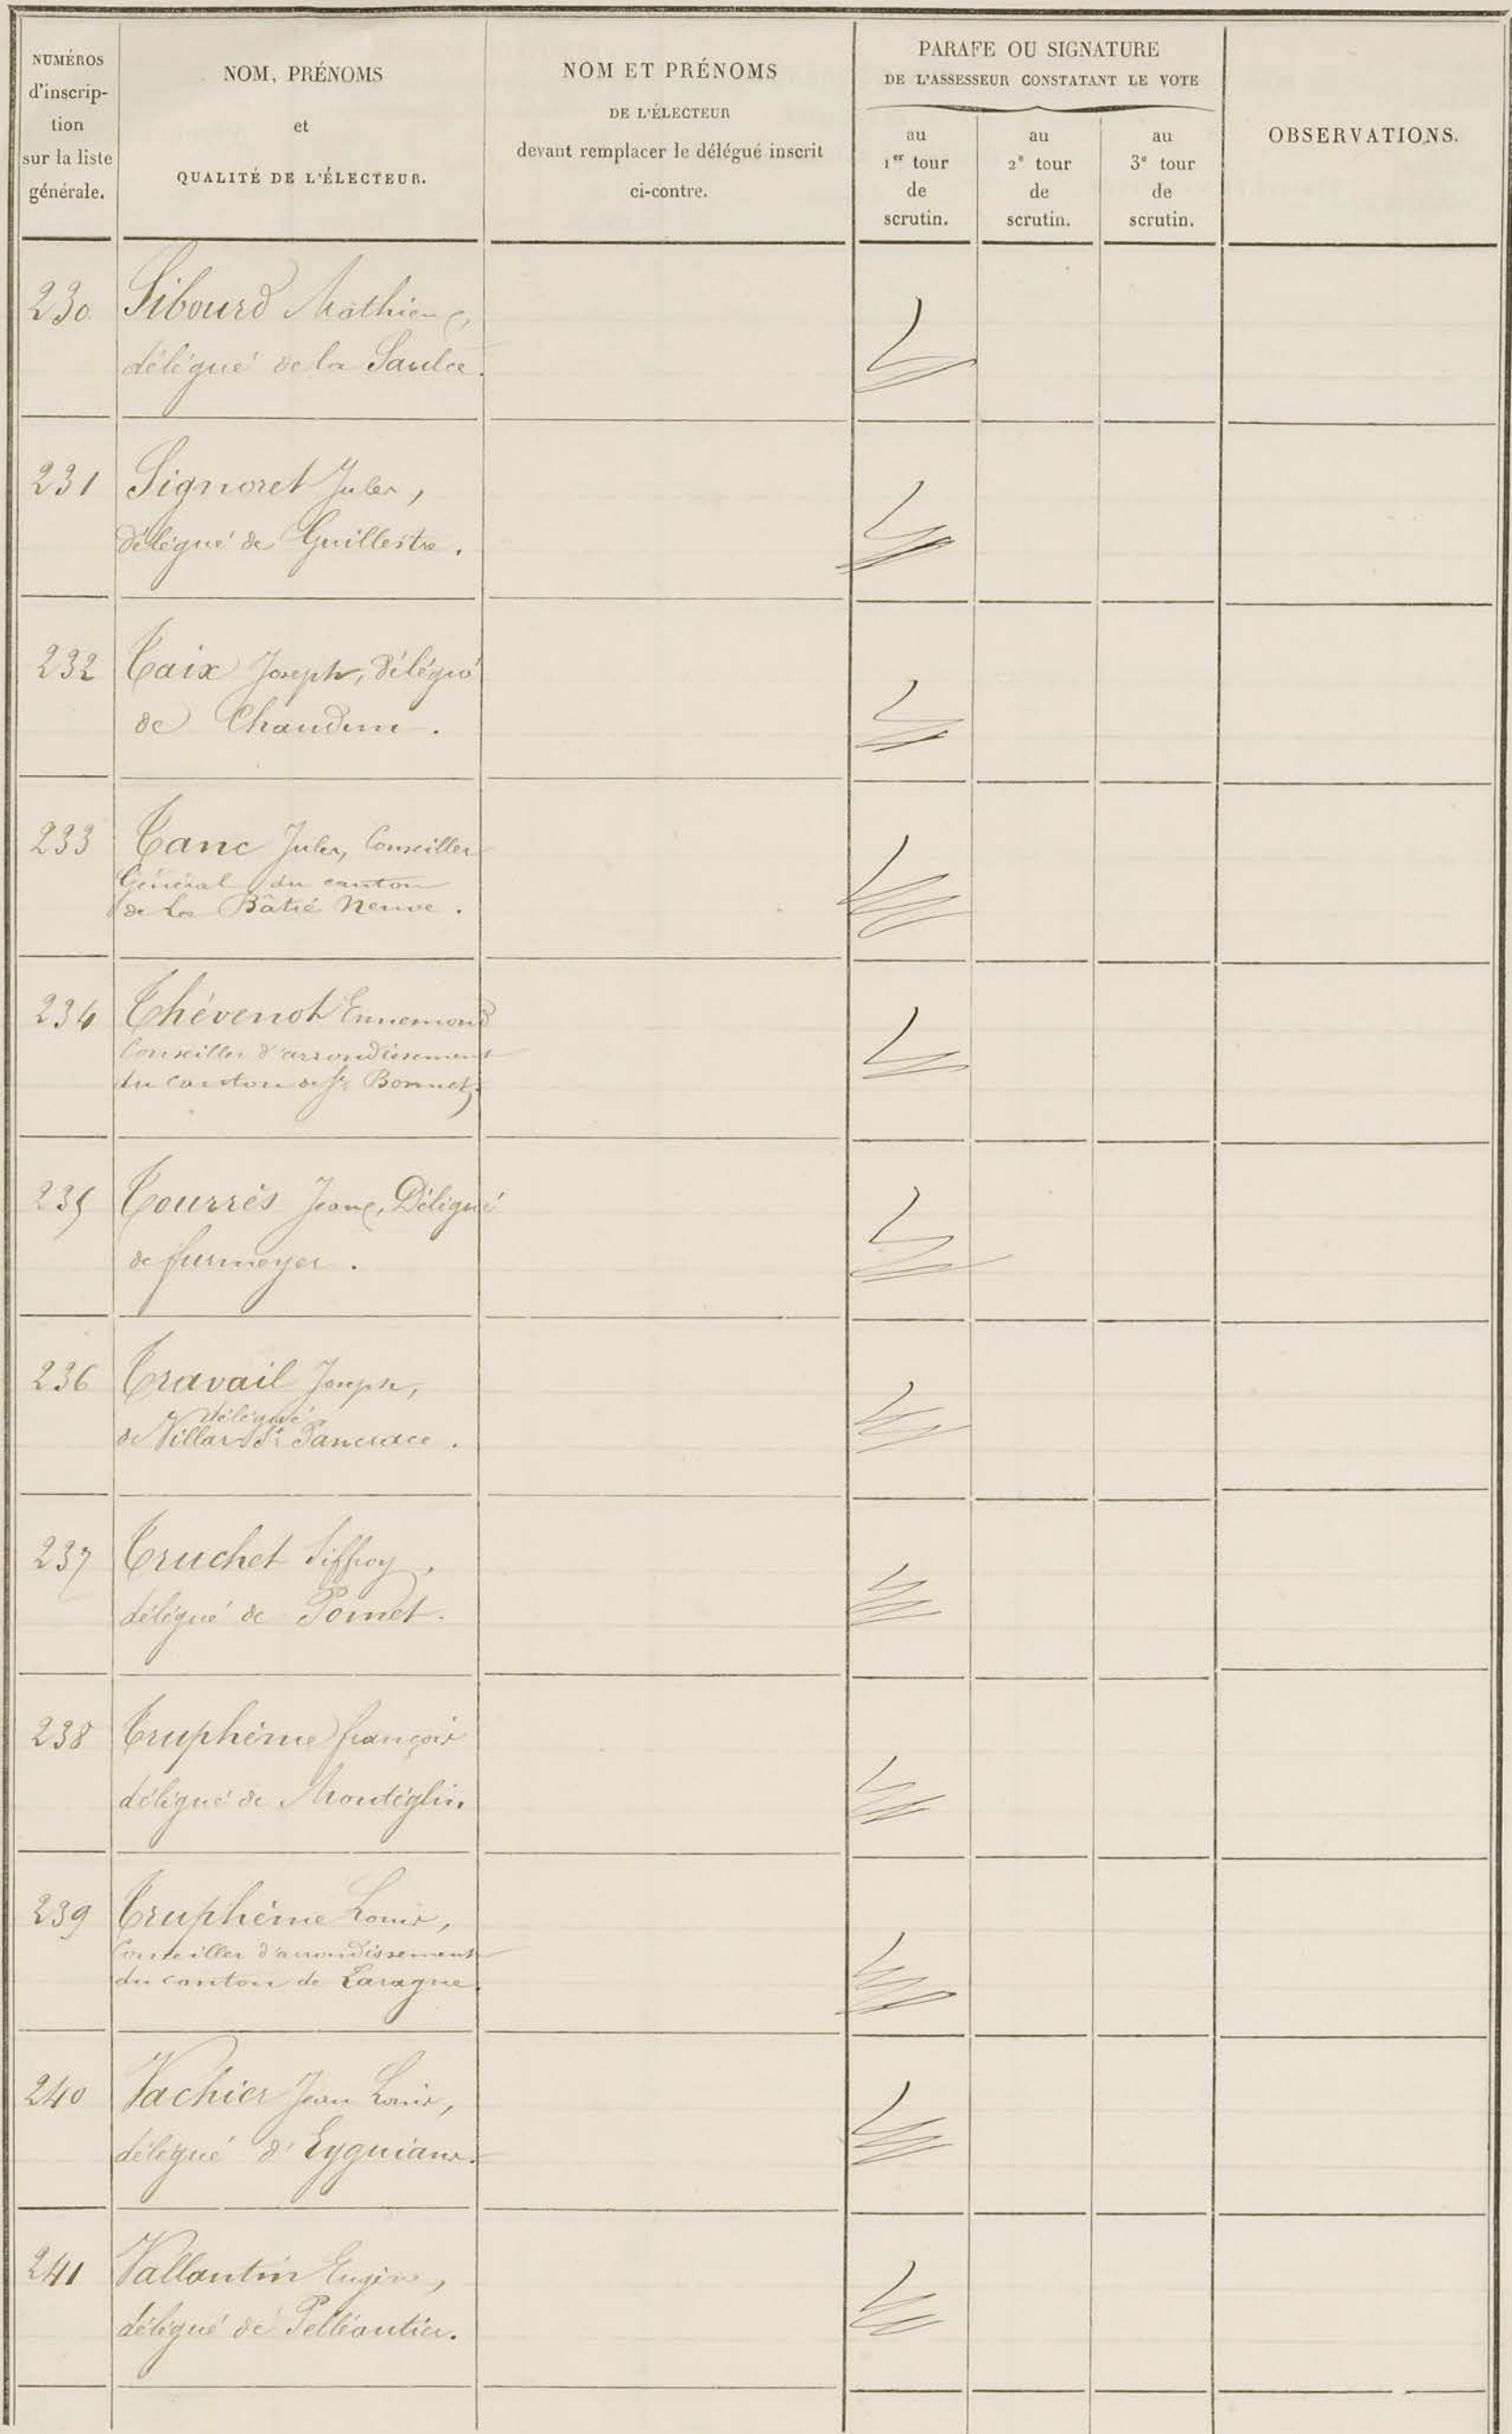 NUMÉROS
d'inscrip-
tion
sur la liste
générale.
NOM, PRÉNOMS
et
QUALITÉ DE L'ÉLECTEUR.
NOM ET PRÉNOMS
DE L'ÉLECTEUR
devant remplacer le délégué inscrit
ci-contre.
PARAFE OU SIGNATURE
DE L'ASSESSEUR CONSTATANT LE VOTE
au
1er tour
de
scrutin.
au
2e tour
de
scrutin.
au
3e tour
de
scrutin.
OBSERVATIONS.
230 Sibourd Mathieu,
délégué de la Saulce.
231 Signoret Jules,
délégué de Guillestre.
232 Taix Joseph, délégué
de Chaudun.
233 Tanc Jules, Conseiller
Général du canton
de La Bâtie Neuve.
234 Thévenot Ennemond
Conseiller d'arrondissement
du canton de St Bonnet.
235 Tourrès Jean, Délégué
de furmeyer.
236 Travail Joseph,
délégué
de Villard St Pancrace.
237 Truchet Siffroy,
délégué de Pomet.
238 Truphème françois
délégué de Montéglin
239 Truphème Louis,
Conseiller d'arrondissement
du canton de Laragne.
240 Vachier Jean Louis,
délégué d'Eyguians.
241 Vallantin Eugène,
délégué de Pelléautier.